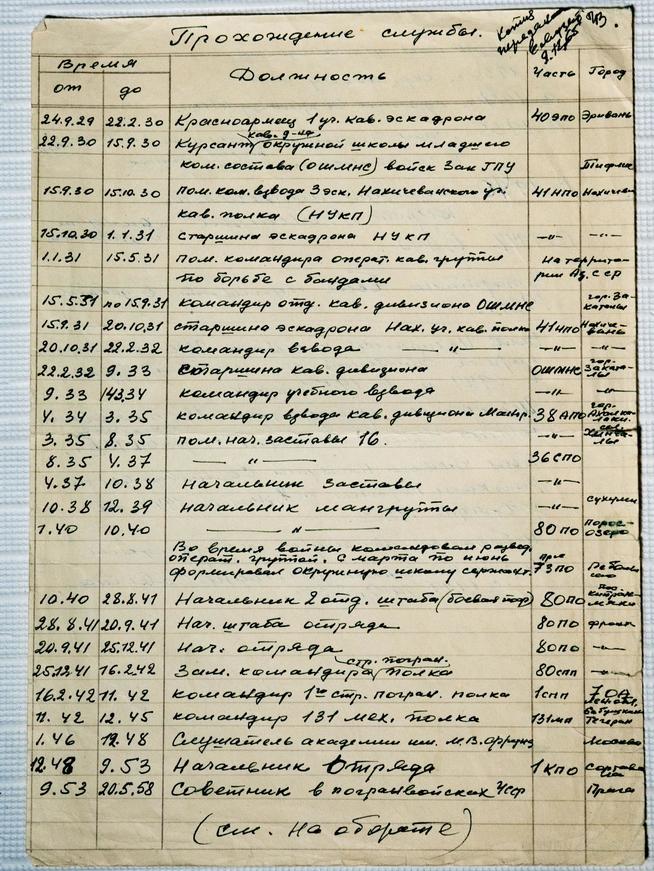 Прохождение службы.
Копия передана 9.12.65
Время Должность Часть Город
от до
24.9.29 22.2.30 Красноармеец 1 уч. кав. эскадрона 40 ЭПО Эривань
кав. д-на
22.9.30 15.9.30 Курсант окружной школы младшего
ком. состава (ОШМНС) войск Зак ГПУ Тифлис
15.9.30 15.10.30 пом. ком. взвода 3 эск. Нахичеванского уч. 41 НПО Нахичев
кав. полка (НУКП)
15.10.30 1.1.31 старшина эскадрона НУКП —"— —"—
1.1.31 15.5.31 пом. командира операт. кав. группы на террито-
по борьбе с бандами рии Аз. ССР
15.5.31 по 15.9.31 командир отд. кав. дивизиона ОШМНС гор. За-
каталы
15.9.31 20.10.31 старшина эскадрона Нах. уч. кав. полка 41 НПО Нахиче-
вань
20.10.31 22.2.32 командир взвода —"— —"— —"—
22.2.32 9.33 Старшина кав. дивизиона ОШМНС гор. Заката-
лы
9.33 4.34 командир учебного взвода —"— —"—
4.34 3.35 командир взвода кав. дивизиона Манр. 38 АПО гор. Ахалка-
лаки
3.35 8.35 пом. нач. заставы 16. —"—
8.35 4.37 —"— 36 СПО
4.37 10.38 Начальник заставы —"—
10.38 12.39 начальник мангруппы —"— сухуми
1.40 10.40 —"— 80 ПО Порос-
озеро
Во время войны командовал развед.
операт. группой. С марта по июнь при
формировал окружную школу сержант. 73 ПО Реболы
10.40 28.8.41 Начальник 2 отд. штаба (боевая под) 80 ПО
28.8.41 20.9.41 Нач. штаба отряда 80 ПО фронт
20.9.41 25.12.41 нач. отряда 80 ПО —"—
стр. погран.
25.12.41 16.2.42 Зам. командира полка 80 СПП —"—
16.2.42 11.42 командир 1го стр. погран. полка 1 СПП 7 ОА
11.42 12.45 командир 131 мех. полка 131 МП Тегеран
1.46 12.48 Слушатель академии им. М.В. Фрунз Москва
12.48 9.53 Начальник отряда 1 КПО Сортава
ла
9.53 20.5.58 Советник в погранвойсках ЧССР Прага
(см. на обороте)